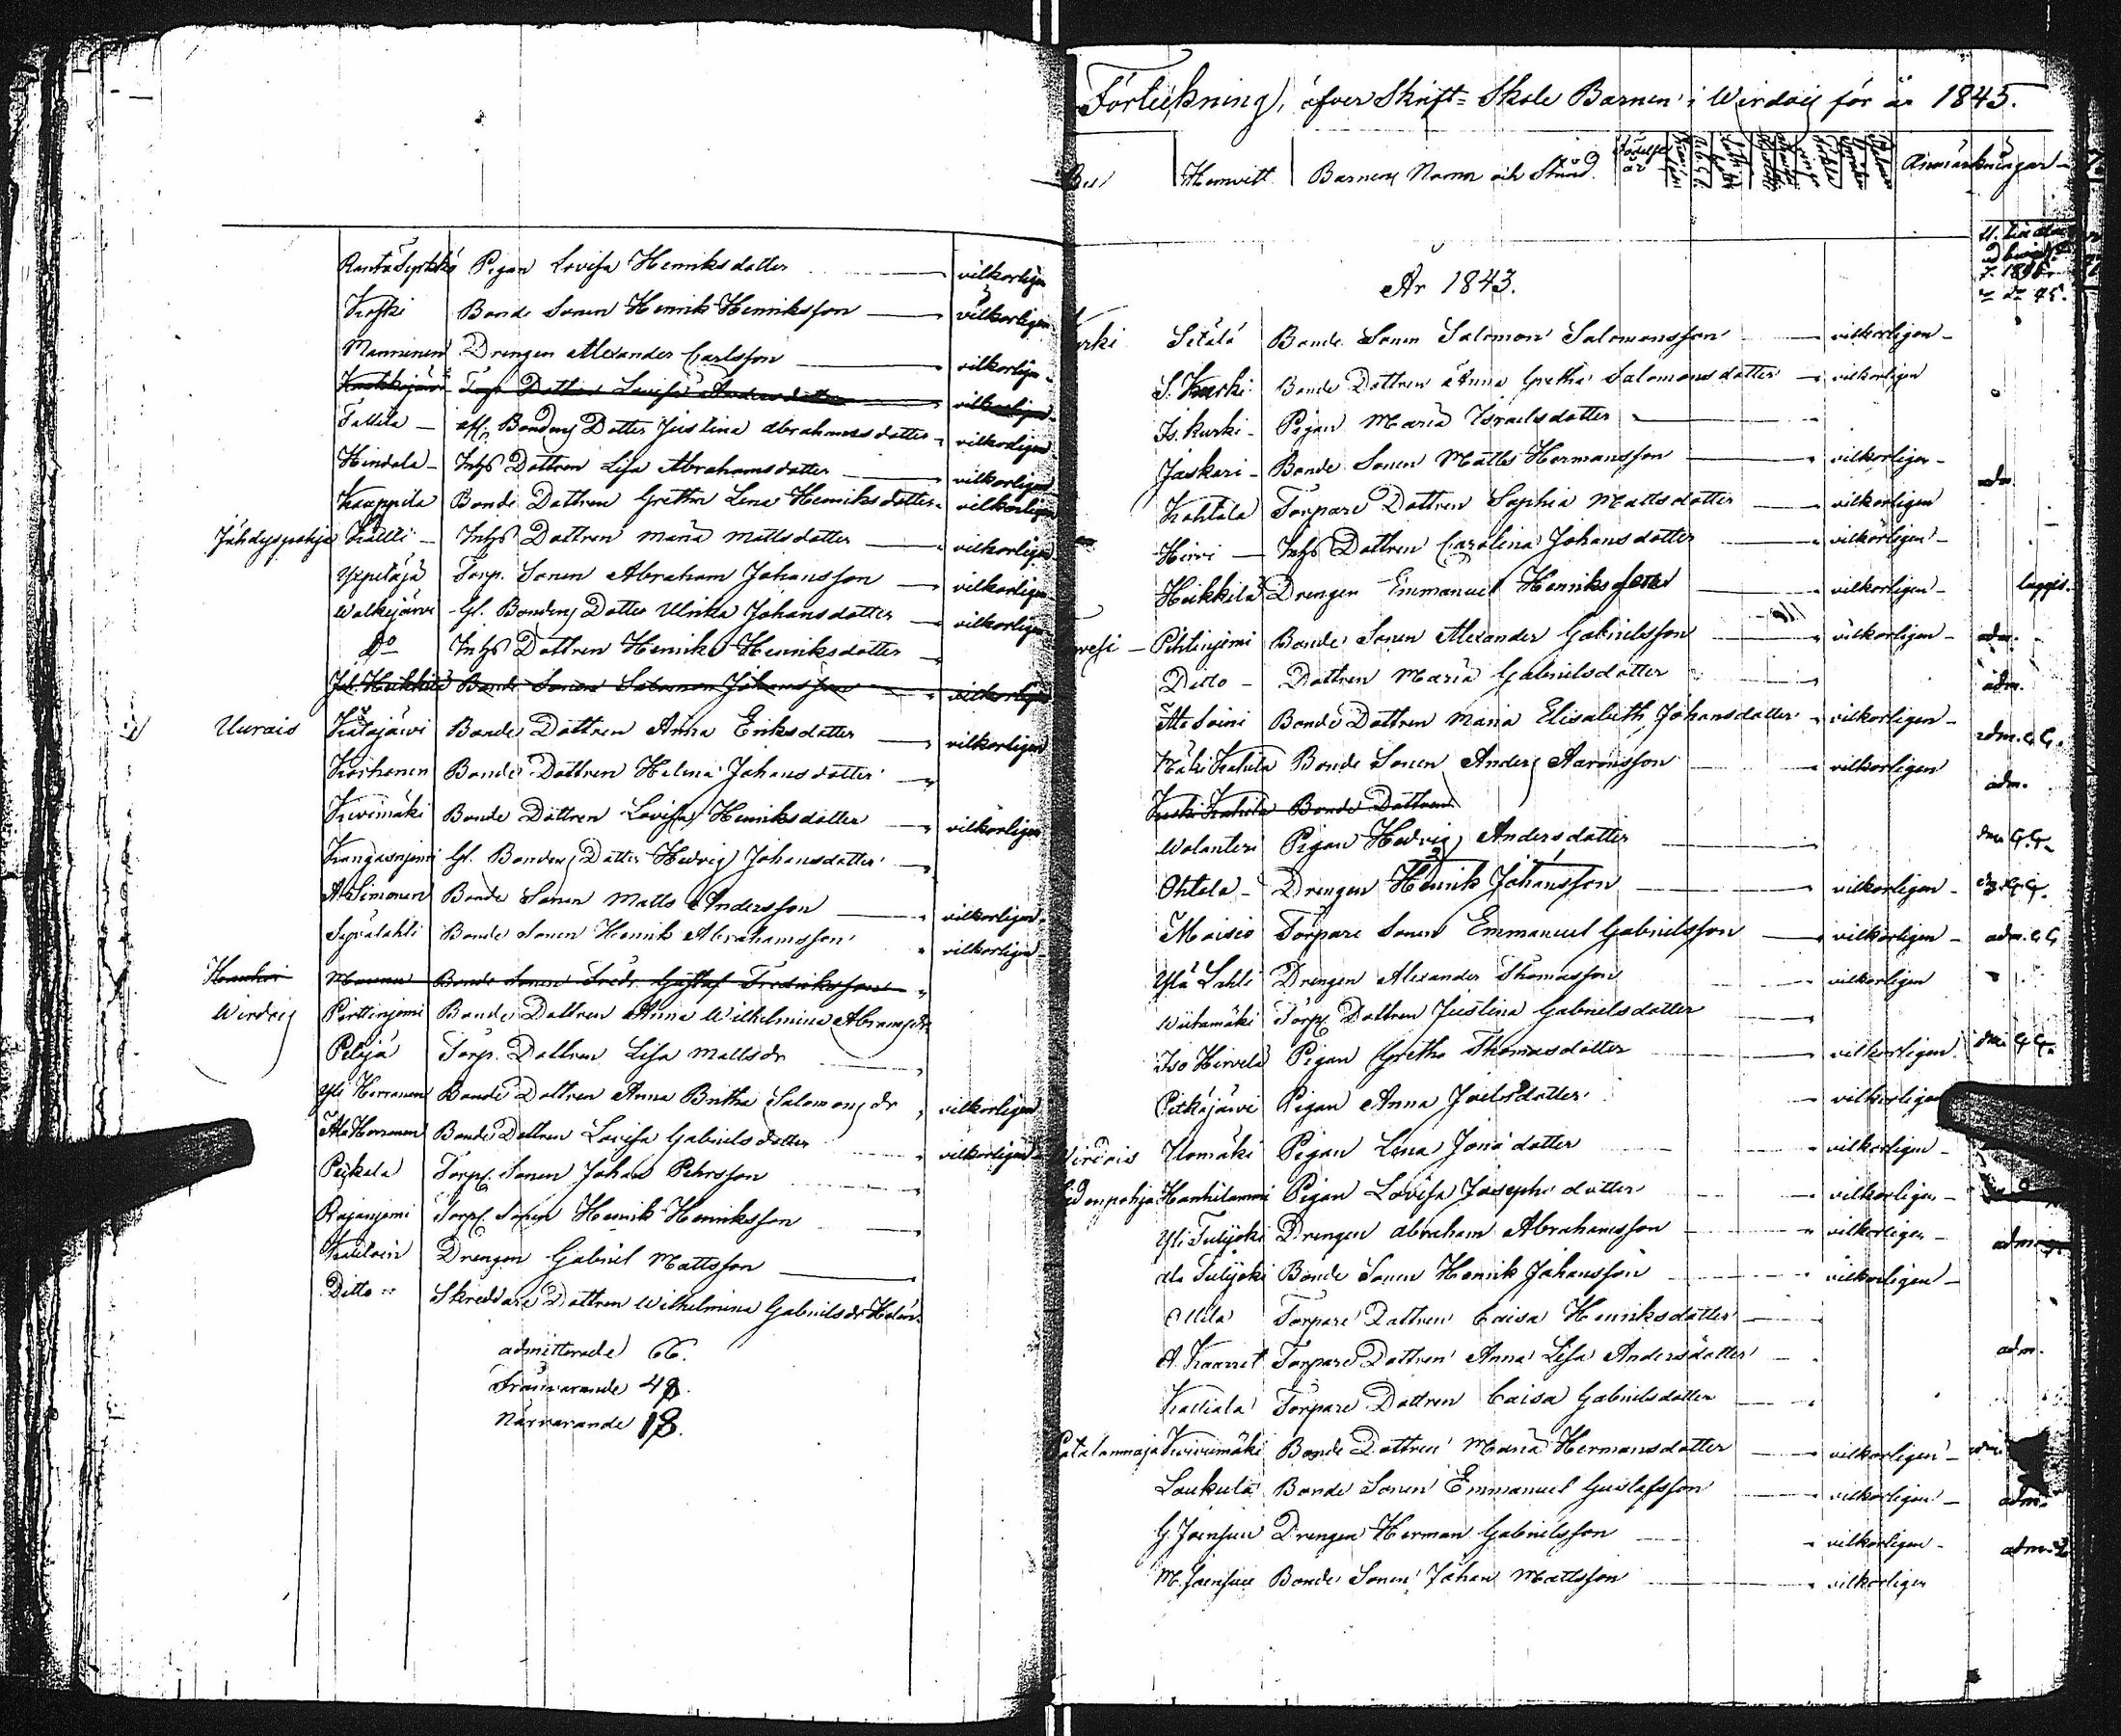 Pigan Lovisa Henriksdotter vilkorligen
Koski Bonde Sonen Henrik Henriksson vilkorligen
Mannunen Drengen Alexander Carlsson vilkorligen
Torp. Dottren Lovisa Andersdotter vilkorligen
Tallila afl. Bondens Dotter Justina Abrahamsdotter vilkorligen
Hindala Inhs Dottren Lisa Abrahamsdotter vilkorligen
Kauppila Bonde Dottren Gretha Lena Henriksdotter vilkorligen
Jähdyspohja Källi Inhs Dottren Maria Mattsdotter vilkorligen
Torp. Sonen Abraham Johansson vilkorligen
Walkejärvi Gl. Bondens Dotter Ulrika Johansdotter vilkorligen
Do Inhs Dottren Henrika Henriksdotter
Joh. Heikkilä Bonde Sonen Salomon Johansson vilkorligen
Uurais Katajärvi Bonde Dottren Anna Eriksdotter vilkorligen
Korhonen Bonde Dottren Helena Johansdotter
Kivimäki Bonde Dottren Lovisa Henriksdotter vilkorligen
Kangasniemi Gl. Bondens Dotter Hedvig Johansdotter
A. Simonen Bonde Sonen Matts Andersson vilkorligen
Syvälahti Bonde Sonen Henrik Abrahamsson vilkorligen
Bonde Sonen Fredr. Gustaf Fredriksson
Wirdois Pirttiniemi Bonde Dottren Anna Wilhelmina Abramsdr
Pelajä Torp. Dottren Lisa Mattsdr
Yli Herranen Bonde Dottren Anna Britha Salomons dr vilkorligen
Ala Herranen Bonde Dottren Lovisa Gabrielsdotter vilkorligen
Peikala Torp. Sonen Johan Pehrsson
Rajaniemi Torp. Sonen Henrik Henriksson
Drengen Gabriel Mattsson
Ditto Skreddare Dottren Wilhelmina Gabrielsdr
admitterade 66.
Frånvarande 48.
Närvarande 18.
Förteckning, öfver Skrift-Skole Barnen i Wirdois för år 1845.
By Hemvitt Barnens Namn och Stånd Födelse år Anmärkningar
År 1843.
Setälä Bonde Sonen Salomon Salomonsson vilkorligen
S. Kurki Bonde Dottren Anna Gretha Salomonsdotter vilkorligen
Is. Kurki Pigan Maria Israelsdotter
Jaskari Bonde Sonen Matts Hermansson vilkorligen adm.
Kohtala Torpare Dottren Sophia Mattsdotter vilkorligen
Hirvi Inhs Dottren Carolina Johansdotter vilkorligen
Heikkilä Drengen Emmanuel Henriksson vilkorligen
Pihtiniemi Bonde Sonen Alexander Gabrielsson vilkorligen adm.
Ditto Dottren Maria Gabrielsdotter adm.
Ala Soini Bonde Dottren Maria Elisabeth Johansdotter vilkorligen
Bonde Sonen Anders Aaronsson vilkorligen adm.
Bonde Dottren
Wolanteri Pigan Hedvig Andersdotter
Ohtola Drengen Henrik Johansson vilkorligen
Moisio Torpare Sonen Emmanuel Gabrielsson vilkorligen
Ylä Lahti Drengen Alexander Thomasson vilkorligen
Wiitamäki Torp. Dottren Justina Gabrielsdotter
Iso Hirvelä Pigan Gretha Thomasdotter vilkorligen
Pitkäjärvi Pigan Anna Joelsdotter vilkorligen
Wirdois Uomäki Pigan Lena Jonädotter vilkorligen
Hauhilammi Pigan Lovisa Josephsdotter vilkorligen
Yli Tulijoki Drengen Abraham Abrahamsson vilkorligen adm.
Ala Tulijoki Bonde Sonen Henrik Johansson vilkorligen
Ollila Torpare Dottren Caisa Henriksdotter
A. Kaarret Torpare Dottren Anna Lisa Andersdotter adm.
Kattiala Torpare Dottren Caisa Gabrielsdotter
Kivimäki Bonde Dottren Maria Hermansdotter vilkorligen
Laukula Bonde Sonen Emmanuel Gustafsson vilkorligen adm.
G. Joensuu Drengen Herman Gabrielsson vilkorligen
M. Joensuu Bonde Sonen Johan Mattsson vilkorligen